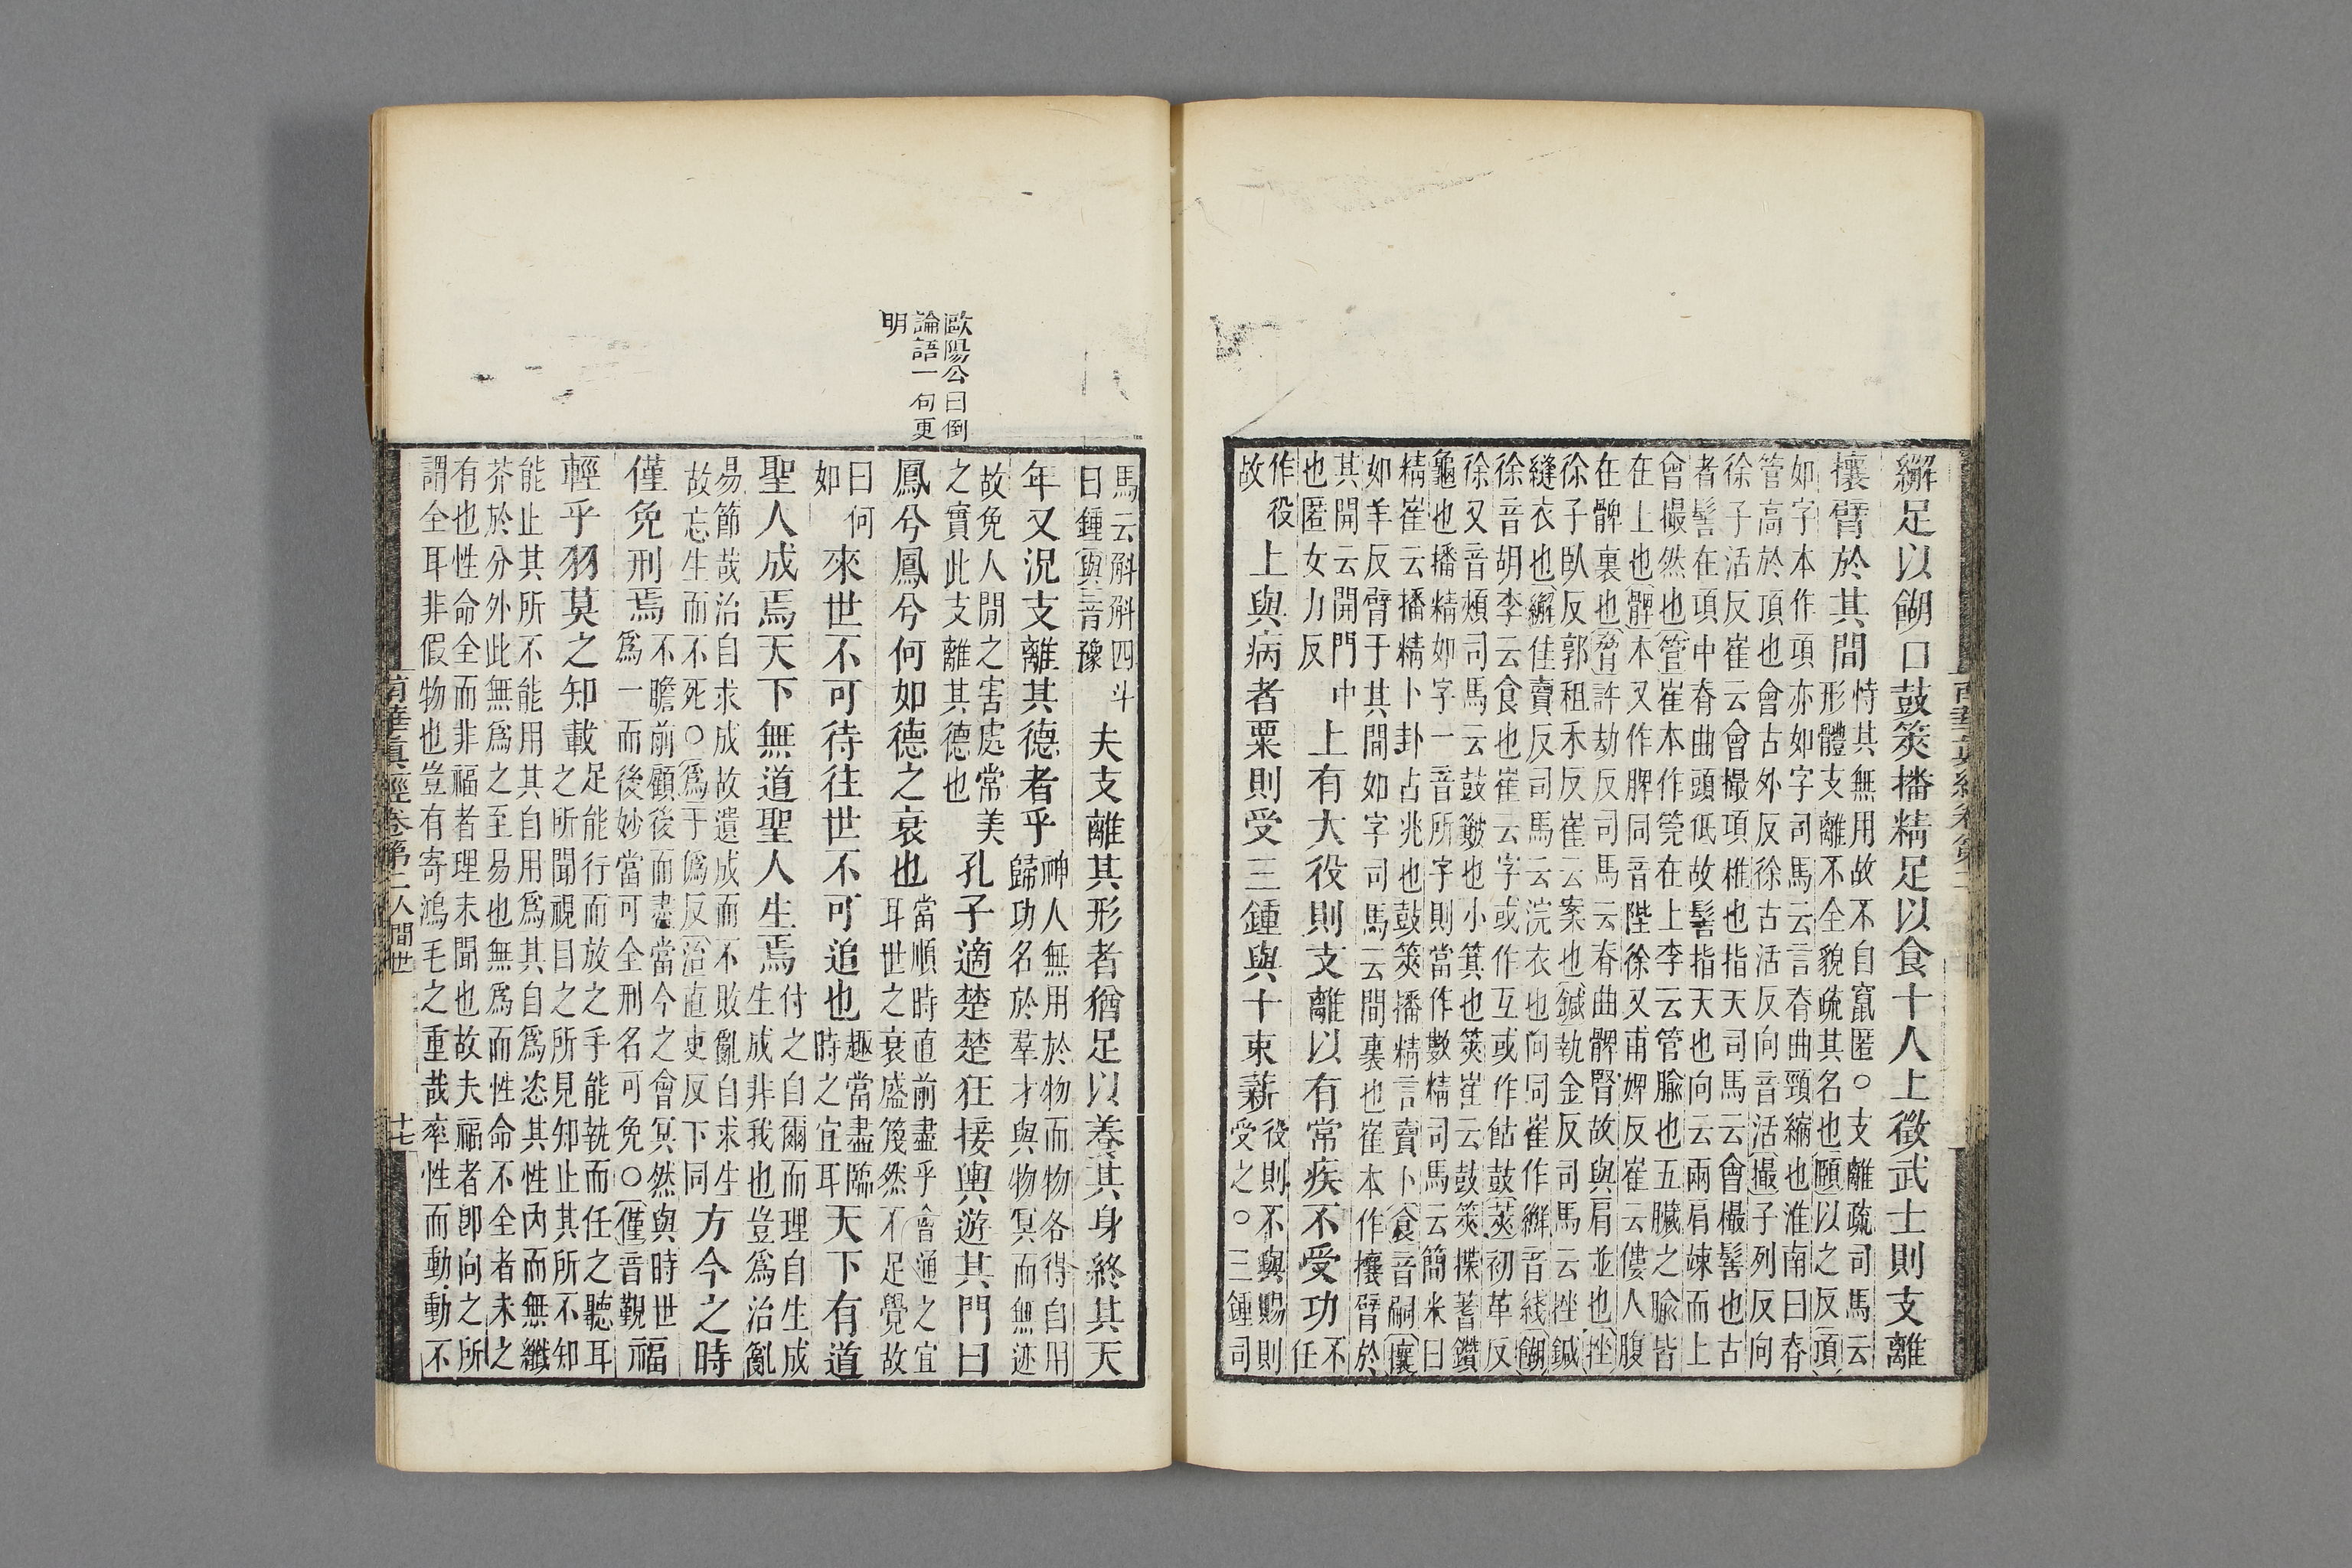 繲足以餬口鼓筴播精足以食十人上徵武士則支離
攘臂於其間
恃其無用故不自竄匿○支離疏司馬云
形體支離不全貌疏其名也頤以之反項
如字本作項亦如字司馬云言脊曲頸縮也淮南曰脊
管高於頂也會古外反徐古活反向音活撮子列反向
徐子活反崔云會撮項椎也指天司馬云會撮髻也古
者髻在項中脊曲頭低故髻指天也向云兩肩竦而上
會撮然也管崔本作筦在上李云管腧也五臟之腧皆
在上也髀本又作脾同音陛徐又甫婢反崔云僂人腹
在髀裏也脅許劫反司馬云脊曲髀腎故與肩並也挫
徐子臥反郭租禾反崔云案也鍼執金反司馬云挫鍼
縫衣也繲佳賣反司馬云浣衣也向同崔作繲音綫餬
徐音胡李云食也崔云字或作互或作䬴鼓筴初革反
徐又音頰司馬云鼓簸也小箕也筴崔云鼓筴揲蓍鑽
龜也播精如字一音所字則當作數精司馬云簡米曰
精崔云播精卜卦占兆也鼓筴播精言賣卜食音嗣攘
如羊反臂于其間如字司馬云間裏也崔本作攘臂於
其開云開門中
也匿女力反
上有大役則支離以有常疾不受功
不
任
作役
故
上與病者粟則受三鍾與十束薪
役則不與賜則
受之○三鍾司
南華真經卷第二
歐陽公曰倒
論語一句更
明
馬云斛斛四斗
曰鍾與音豫
夫支離其形者猶足以養其身終其天
年又況支離其德者乎
神人無用於物而物各得自用
歸功名於羣才與物冥而無迹
故免人閒之害處常美
之實此支離其德也
孔子適楚楚狂接輿遊其門曰
鳳兮鳳兮何如德之衰也
當順時直前盡乎會通之宜
耳世之衰盛篾然不足覺故
曰何
如
來世不可待往世不可追也
趣當盡臨
時之宜耳
天下有道
聖人成焉天下無道聖人生焉
付之自爾而理自生成
生成非我也豈爲治亂
易節哉治自求成故遺成而不敗亂自求生
故忘生而不死○爲于僞反治直吏反下同
方今之時
僅免刑焉
不瞻前顧後而盡當今之會冥然與時世
爲一而後妙當可全刑名可免○僅音覲
福
輕乎羽莫之知載
足能行而放之手能執而任之聽耳
之所聞視目之所見知止其所不知
能止其所不能用其自用爲其自爲恣其性內而無纖
芥於分外此無爲之至易也無爲而性命不全者未之
有也性命全而非福者理未聞也故夫福者卽向之所
謂全耳非假物也豈有寄鴻毛之重哉率性而動動不
南華眞經卷第二人間世
十七